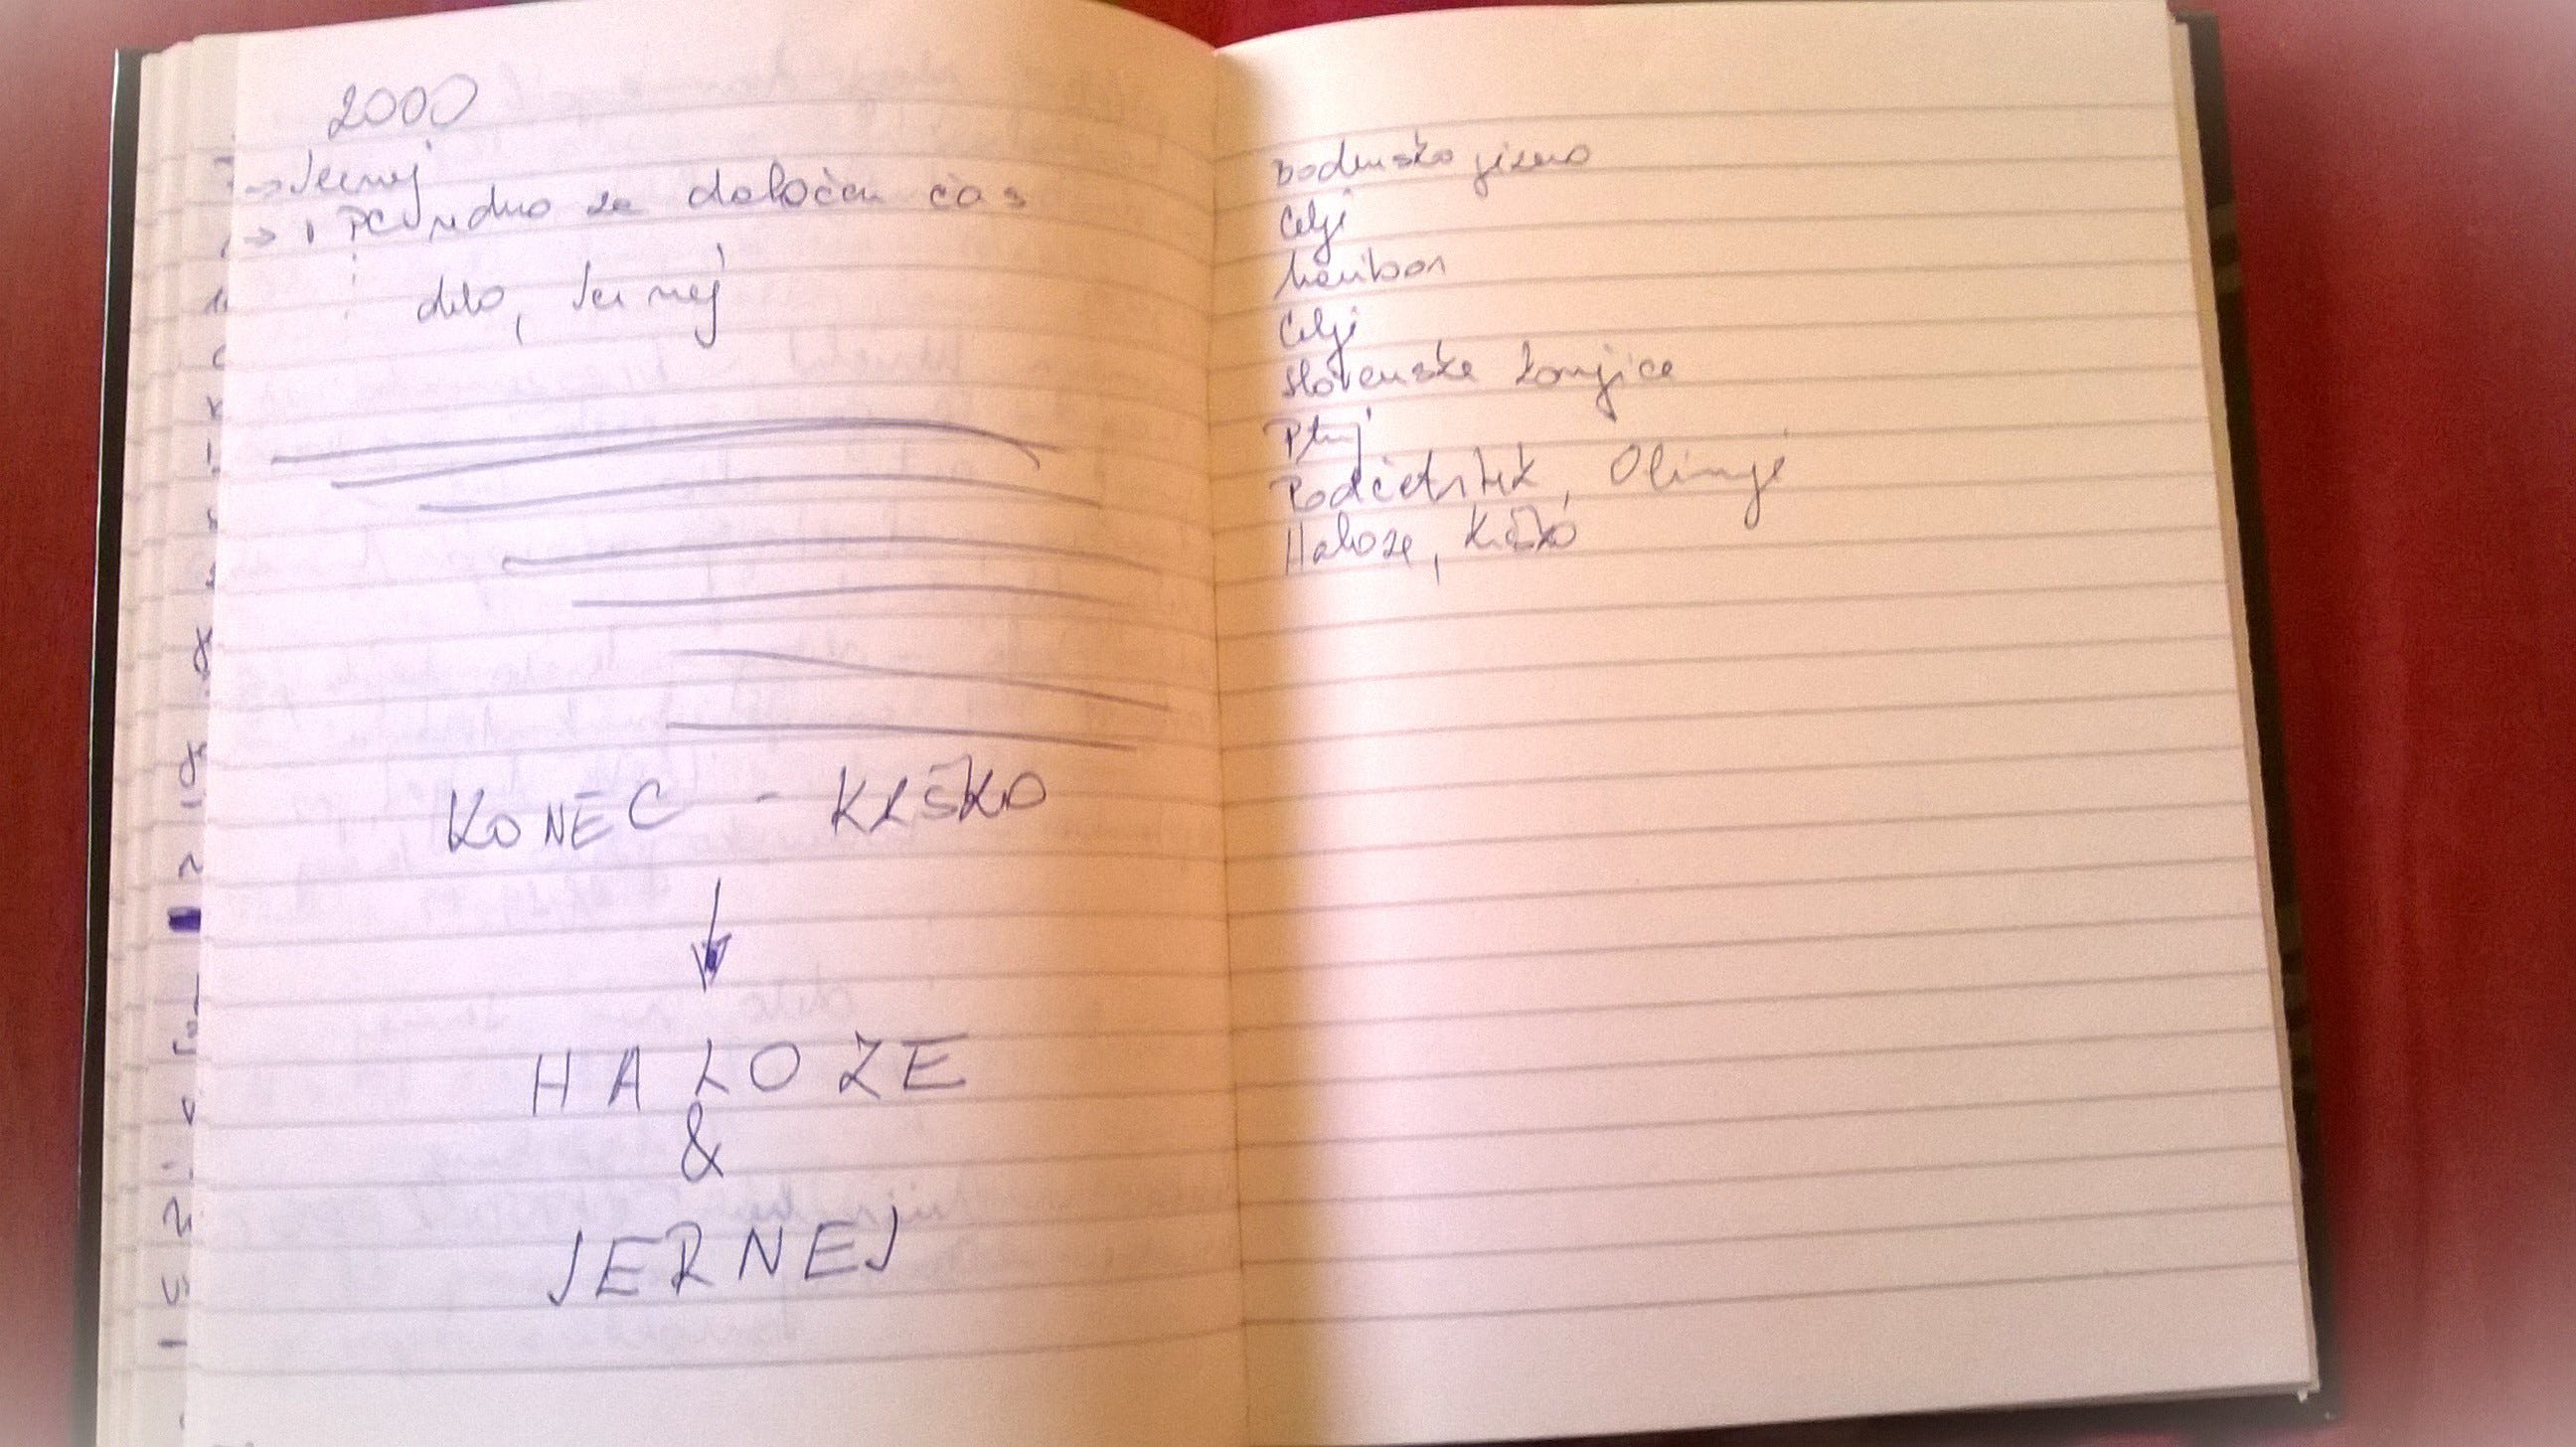 2000
→ Jernej
→ 1 PC redno za določen čas
delo, Jernej
KONEC - KRŠKO
HALOZE
&
JERNEJ
Bodensko jezero
Celje
Maribor
Celje
Slovenske Konjice
Ptuj
Podčetrtek, Olimje
Haloze, Krško